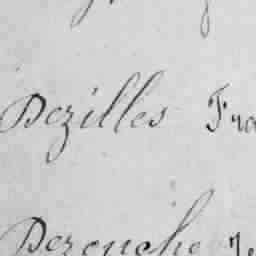 Dezilles Fra
Derenche Je